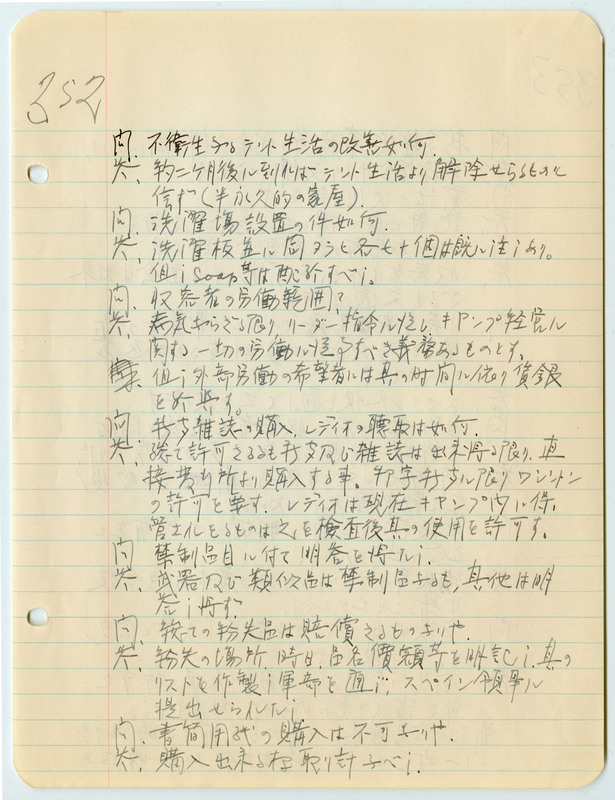 352
問、不衛生なるテント生活の改善如何、
答、約二ケ月後に到ればテント生活より解除せらるものと
信ず（半永久的の家屋）、
問、洗濯場設置の件如何、
答、洗濯板並に同タラヒ各七十個は既に注しあり。
但し soap等は配給すべし。
問、収容者の労働範囲？
答、病気ならざる限り、リーダー、指令に従し、キャンプ経営に
関する一切の労働に従事すべき義務あるものとす、
但し外部労働の希望者には其の時間に依り賃銀
を給与す。
問、新聞雑誌の購入、レディオの聴取は如何、
答、総て許可さるる新聞及び雑誌は出来得る限り、直
接発行所より購入する事、邦字新聞に限りワシントン
の許可を要す、レディオは現在キャンプ内に保
管されをるものは之を検査後其の使用を許可す、
問、禁制品目に付て明答を得たし、
答、武器及び類似品は禁制品なるも、其他は明
答し得ず
問、総ての紛失品は賠償さるものなりや、
答、紛失の場所、時日、品名價額等を明記し、其の
リストを作製し軍部を通じ、スペイン領事に
提出せられたし
問、書簡用紙の購入は不可なりや、
答、購入出来る様取り計ふべし、